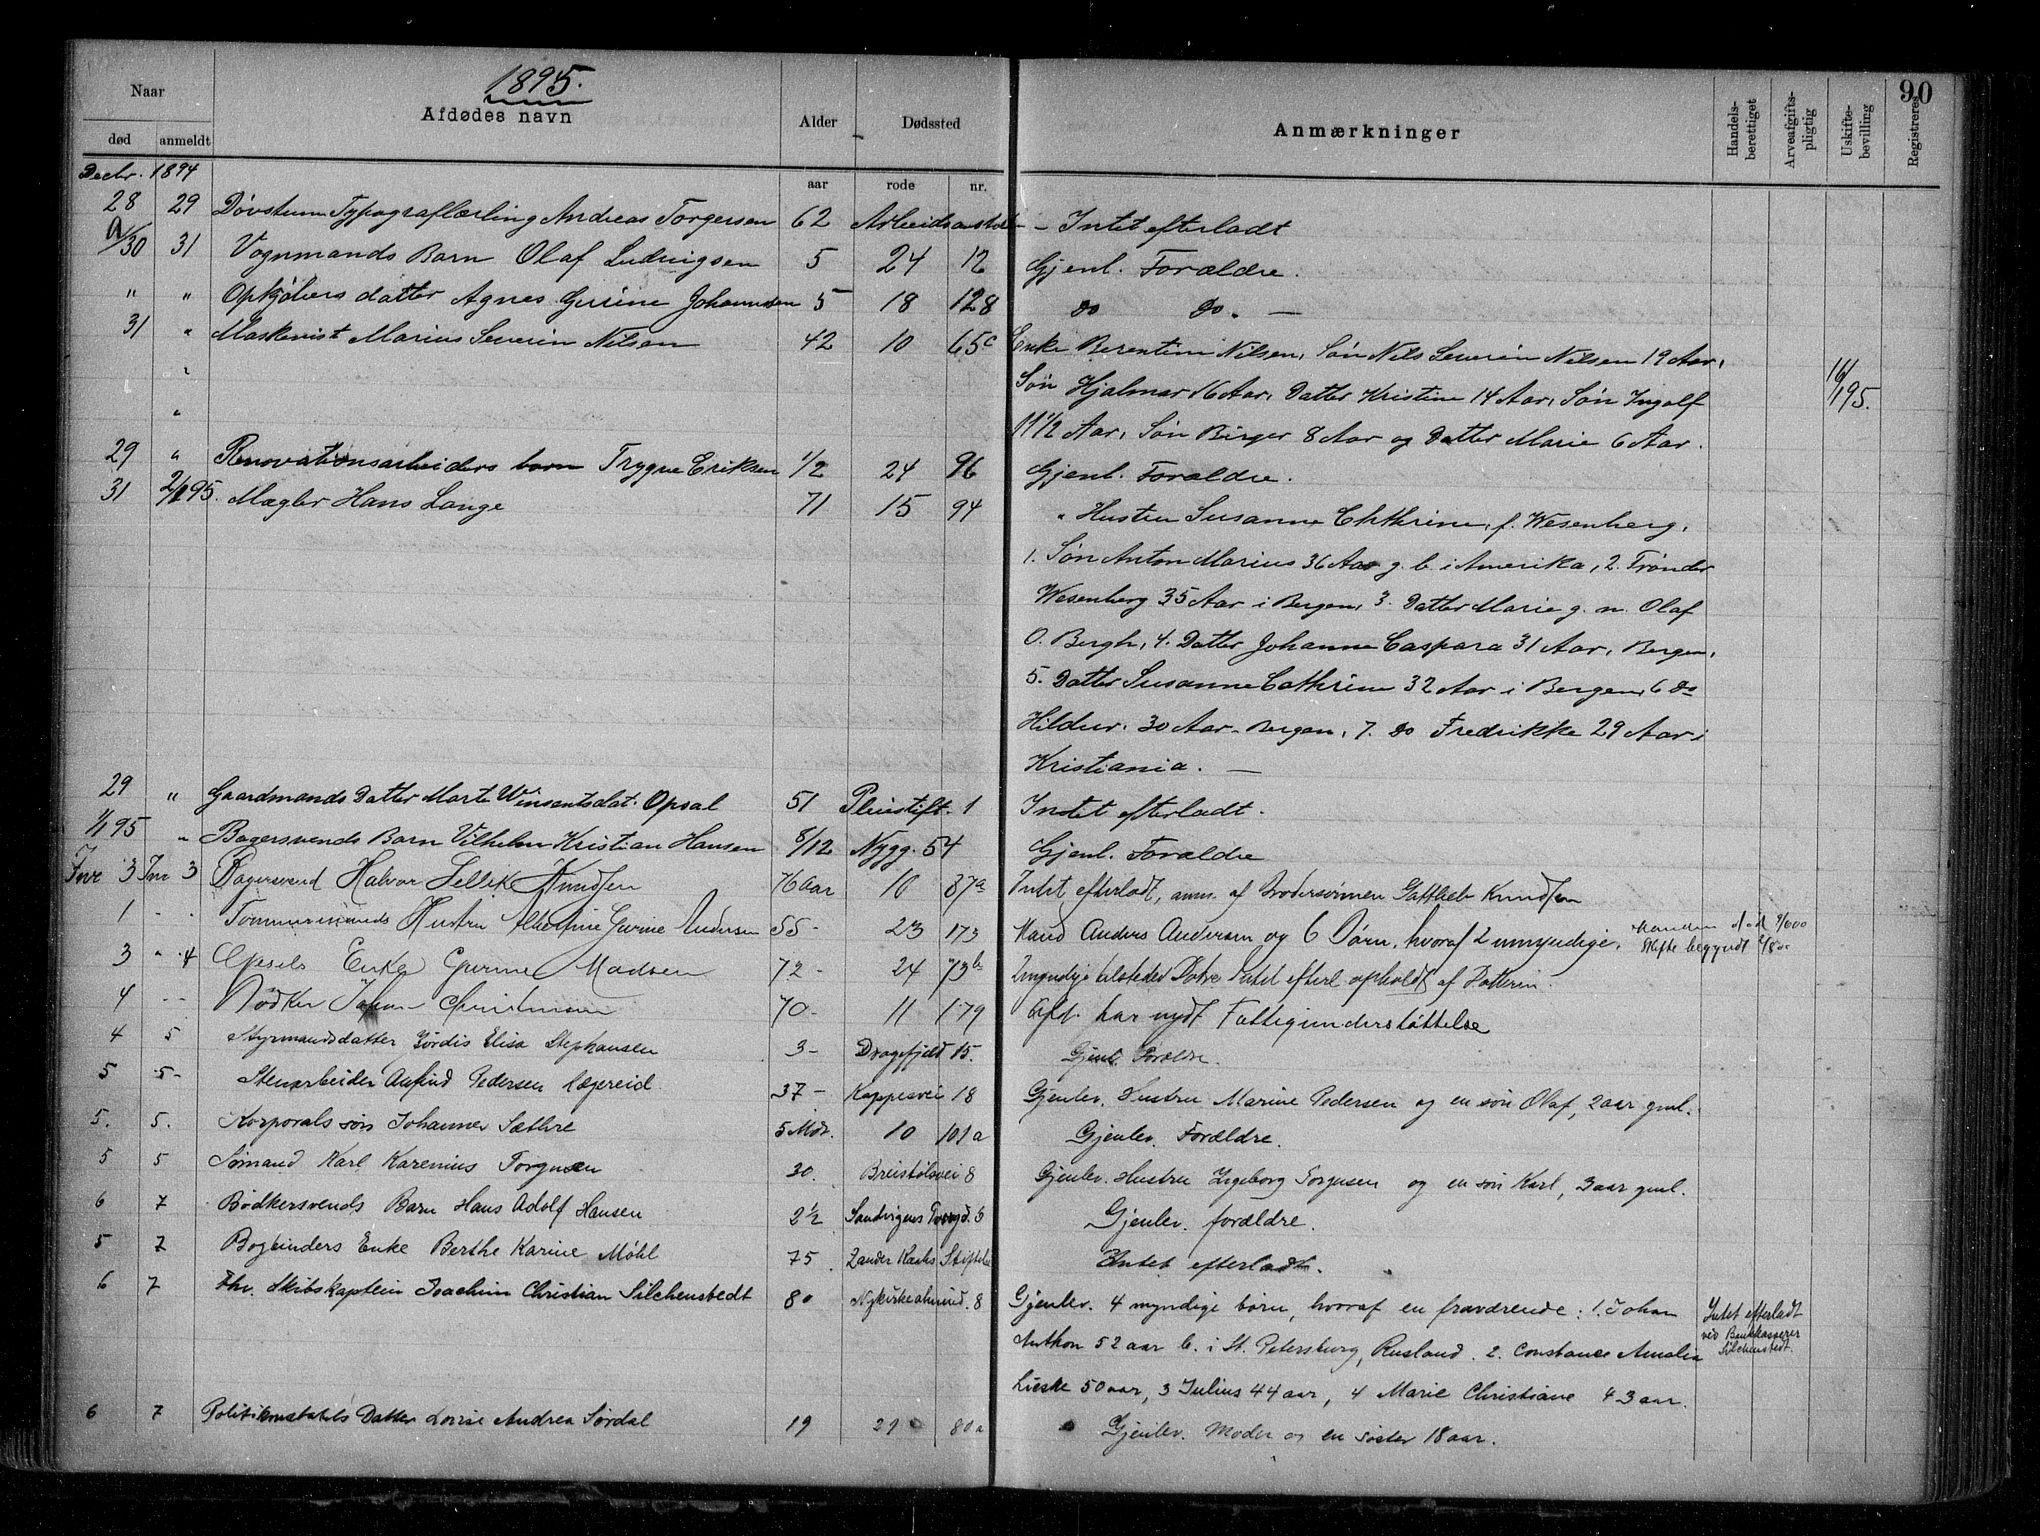 1895.
90
Naar
Afdødes navn
Alder
Dødssted
Anmærkninger
Handels-berettiget
Arveafgifts-pligtig
Uskifte-bevilling
Registreres
død anmeldt aar rode nr.
Decbr. 1894
28 29 Døvstum Typograflærling Andreas Torgersen 62 Arbeidsanstalt - Intet efterladt
30 31 Vognmands Barn Olaf Ludvigsen 5 24 12 Gjenl. Forældre.
" " Opkjøbers datter Agnes Gurine Johannesen 5 18 128 do do. —
31 " Maskinist Marius Severin Nilsen 42 10 65c Enke Berentine Nilsen, Søn Nils Severin Nilsen 19 Aar,
Søn Hjalmar 16 Aar, Datter Kristine 14 Aar, Søn Ingolf 16/1 95.
11 1/2 Aar, Søn Birger 8 Aar og Datter Marie 6 Aar.
29 " Renovationsarbeiders barn Trygve Eriksen 1/2 24 96 Gjenl. Forældre.
31 2/1 95. Mægler Hans Lange 71 15 94 " Hustru Susanne Chthrine, f. Wesenberg,
1. Søn Anton Marius 36 Aar g. b. i Amerika, 2. Trønder
Wesenberg 35 Aar i Bergen, 3. Datter Marie g. m. Olaf
O. Bergh, 4. Datter Johanne Caspara 31 Aar, Bergen,
5. Datter Susanne Cathrine 32 Aar i Bergen, 6 do
Hildur, 30 Aar - Bergen, 7. do Fredrikke 29 Aar i
Kristiania. —
29 " Gaardmands Datter Marte Winsentsdat. Opsal 51 Pleiestift. 1 Intet efterladt.
1/1 95 " Bagersvends Barn Vilhelm Kristian Hansen 8/12 Nygg. 54 Gjenl. Forældre
Jnr 3 Jnr 3 Bagersvend Halvor Knudsen 76 aar 16 37a Intet efterladt, anm. af Brodersønnen Gottlieb Knudsen
1 - Tømmermands Hustru Albertine Gurine Andersen 55 - 23 173 Mand Anders Andersen og 6 Børn, hvoraf 2 umyndige. Manden død
Skifte begyndt
3 " 4 Enke Gurine Madsen 72 - 24 73b Datre Intet efterl opholdt af Datteren
4 - - Bødker Johan Christensen 70 - 11 179 Afd. har nydt Fattigunderstøttelse
4 5 Styrmandsdatter Hjørdis Elisa Stephansen 3 - Dragefjeld 15. Gjenl. Forældre.
5 5 - Stenarbeider Anfind Pedersen Lægreid. 37 - Kappesvei 18 Gjenlev. Hustru Marine Pedersen og en søn Olaf, 2 aar gml.
5. 5. Korporals søn Johannes Sæthre 5 Mdr. 10 101a Gjenlev. Forældre.
5 5 Sømand Karl Karenius Torgusen 30. Breistølsvei 8 Gjenlev. Hustru Ingeborg Torgusen og en søn Karl, 3 aar gml.
6 7 Bødkersvends Barn Hans Adolf Hansen 2 1/2 Sandvigens 6 Gjenlev. forældre.
5 7 Bogbinders Enke Berthe Karine Møhl 75 Zander Kaahs Stiftelse Intet efterladt.
6 7 Fhv. Skibskaptein Joachim Christian Silchenstedt 80 Nykirkealmind. 8 Gjenlev. 4 myndige børn, hvoraf en fraværende: 1. Johan Intet efterladt
Anthon 52 aar b. i St. Petersburg, Rusland. 2. Constance Amalia ved Bankkasserer Silchenstedt.
Lieske 50 aar, 3 Julius 44 aar, 4 Marie Christiane 43 aar.
6 7 Politikonstabels Datter Lovise Andrea Sørdal 19 29 80a Gjenlev. Moder og en søster 18 aar.